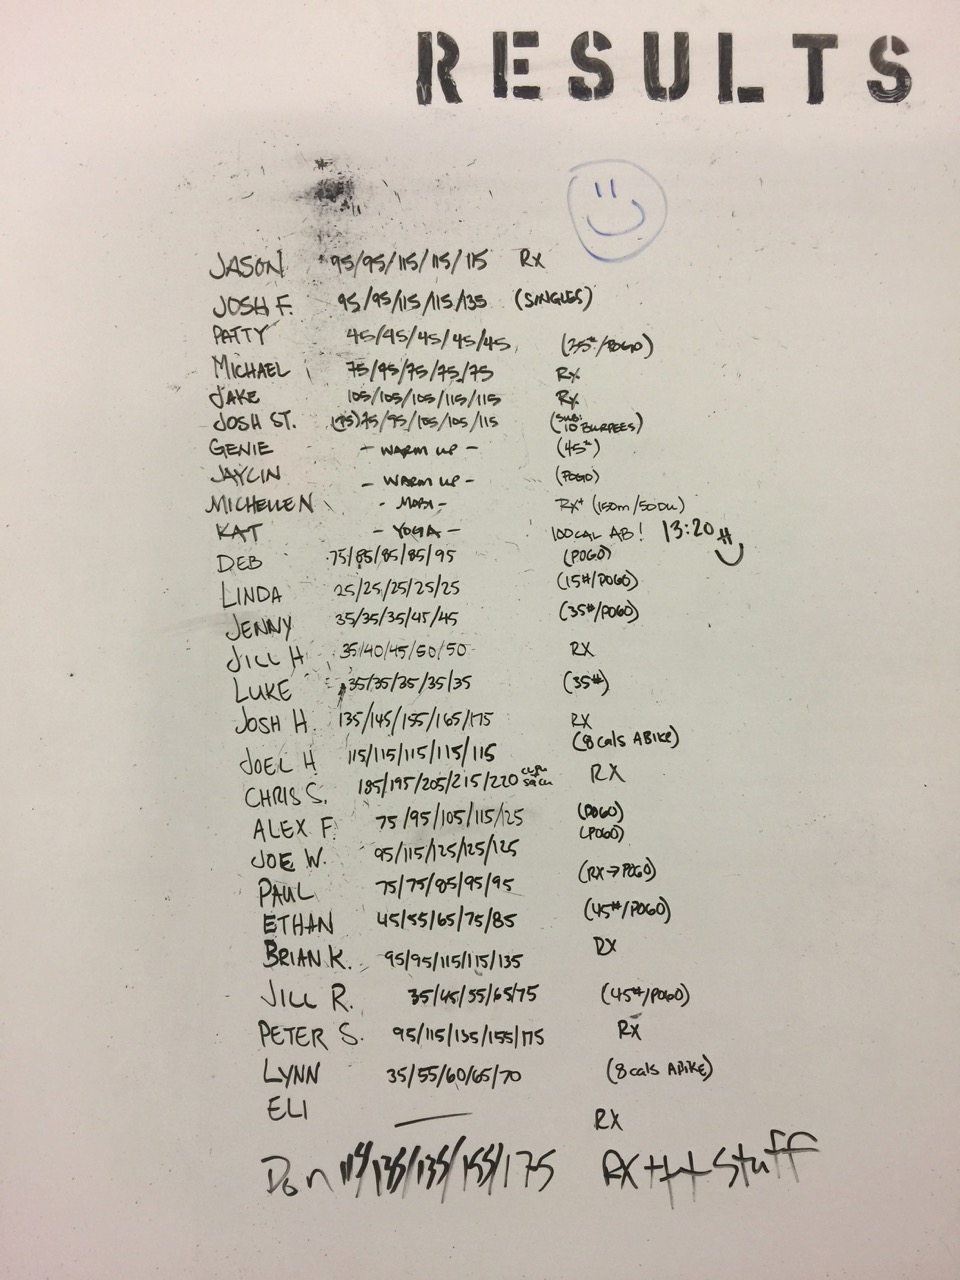 RESULTS
JASON 95/95/115/115/115 RX
JOSH F. 95/95/115/115/135 (SINGLES)
PATTY 45/45/45/45/45 (35#/POGO)
MICHAEL 75/95/75/75/75 RX
JAKE 105/105/105/115/115 RX
JOSH ST. 75/95/105/105/115 (SUB: 10 BURPEES)
GENIE - WARM UP - (45#)
JAYLIN - WARM UP - (POGO)
MICHELLE N - MOBI - RX+ (150m/50DU)
KAT - YOGA - 100 CAL AB! 13:20
DEB 75/85/85/85/95 (POGO)
LINDA 25/25/25/25/25 (15#/POGO)
JENNY 35/35/35/45/45 (35#/POGO)
JILL H 35/40/45/50/50 RX
LUKE 35/35/35/35/35 (35#)
JOSH H. 135/145/155/165/175 RX
JOEL H 115/115/115/115/115 (8 cals ABIKE)
CHRIS S. 185/195/205/215/220 RX
ALEX F. 75/95/105/115/125 (POGO)
JOE W. 95/115/125/125/125 (POGO)
PAUL 75/75/85/95/95 (RX→POGO)
ETHAN 45/55/65/75/85 (45#/POGO)
BRIAN K. 95/95/115/115/135 RX
JILL R. 35/45/55/65/75 (45#/POGO)
PETER S. 95/115/135/155/175 RX
LYNN 35/55/60/65/70 (8 cals ABIKE)
ELI — RX
Don 115/135/135/155/175 RX ++ stuff